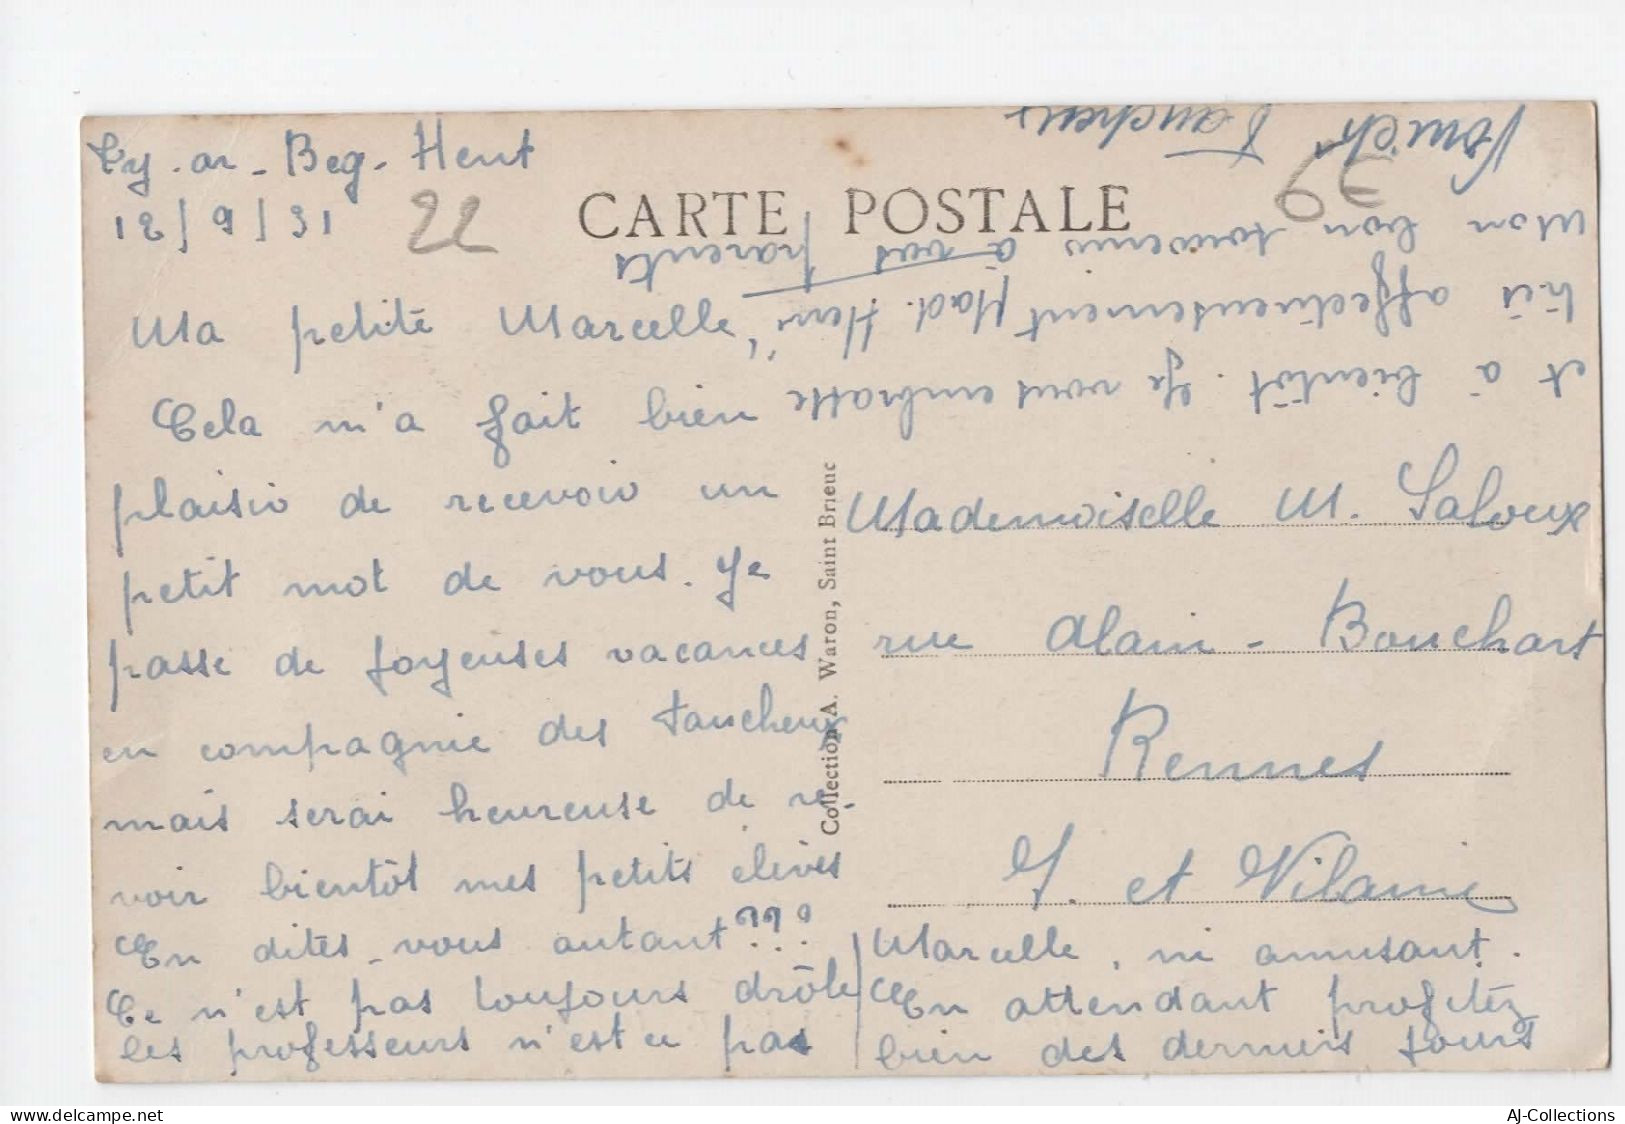 Ty-ar-Beg-Hent
12/9/31
22
CARTE POSTALE
Ma petite Marcelle,
Cela m'a fait bien
plaisir de recevoir un
petit mot de vous. Je
passe de joyeuses vacances
en compagnie des Faucheux
mais serai heureuse de re-
voir bientôt mes petits élèves
En dites-vous autant???
Ce n'est pas toujours drôle
les professeurs n'est ce pas
Marcelle, ni amusant.
En attendant profitez
bien des derniers jours
et à bientôt. Je vous embrasse
très affectueusement Mad. Henri
Mon bon souvenir à vos parents
Faucheux
Collection A. Waron, Saint Brieuc
Mademoiselle M. Saloux
rue Alain-Bouchart
Rennes
I. et Vilaine
AJ-Collections